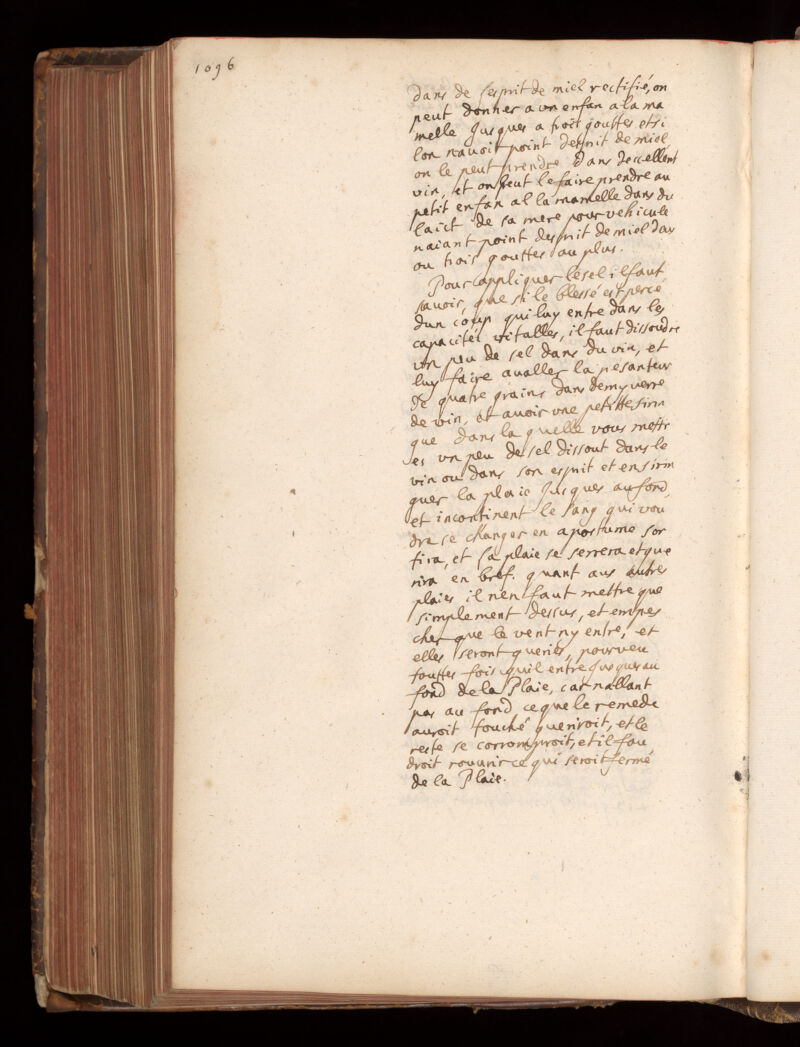 1096
dans de lesprit de miel rectifié, on
peut donner a un enfan a la ma
melle Jusques a trois gouttes et si
lon navoit point desprit de miel
on le peut prendre dans de excellent
vin, et on peut le faire prendre au
petit enfan al la mamelle dans du
laict de sa mere pour vehicule
naiant point desprit de miel dax
ou trois gouttes au plus.
Pour appliquer le sel il faut
sauoir, que si le blessé est percé
dun coup qui luy entre dans les
capacités vitalles, il faut dissoudre
un peu de sel dans du vin, et
luy faire aualler la pesanteur
de quatre grains dans demy verre
de vin, et auoir vne petitte sirin
que dans la quelle vous mettr
es vn peu de sel dissout dans le
vin ou dans son esprit et en sirin
guer la plaie Jusques au fond,
et incontinent le sang qui vou
dra se changer en apostume sor
tira, et la plaie se serrera et gue
rira en bref. quant aux autres
plaies il nen faut mettre que
simplement dessus, et empes
cher que le vent ny entre, et
elles seront gueries, pourveu
touttes fois quil entre Jusques au
fond de la Plaie, car nallant
pas au fond ce que le remede
auroit touché gueriroit, et le
reste se corromproit, et il fau
droit rouurir ce qui seroit fermé
de la Plaie.